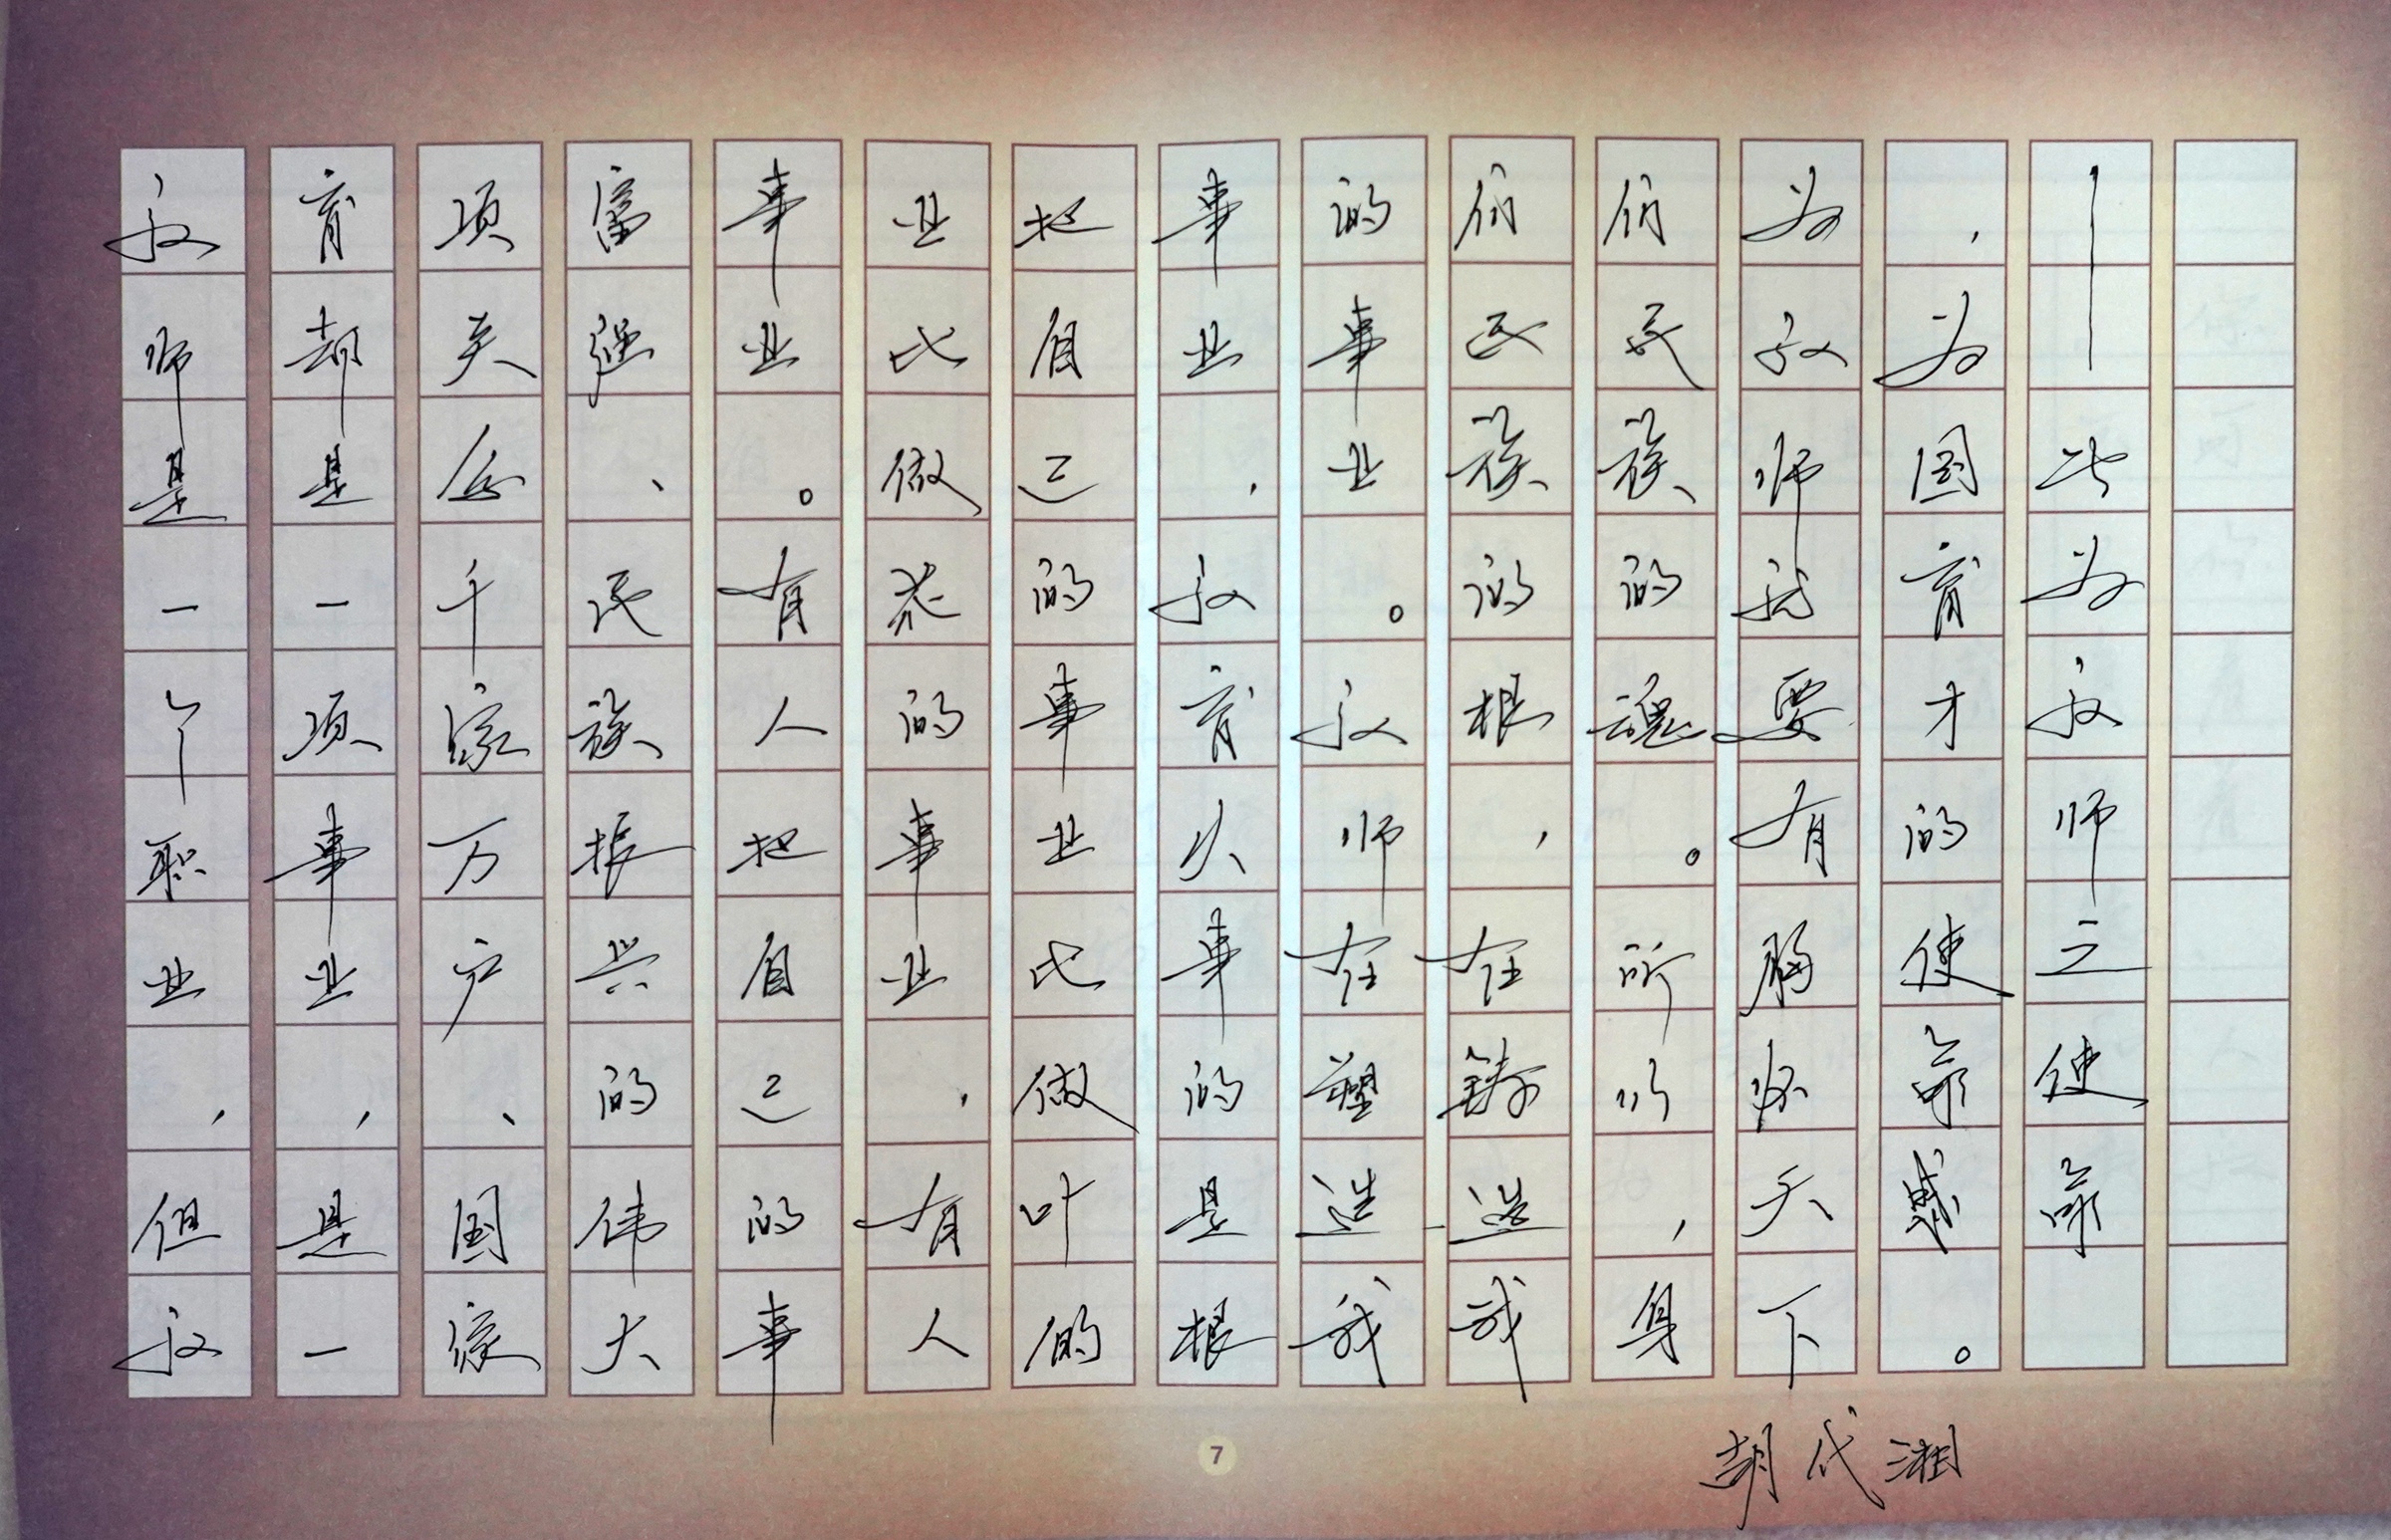 教师是一个职业，但教
育却是一项事业，是一
项关乎千家万户、国家
富强、民族振兴的伟大
事业。有人把自己的事
业比做花的事业，有人
把自己的事业比做叶的
事业，教育从事的是根
的事业。教师在塑造我
们民族的根，在铸造我
们民族的魂。所以，身
为教师就要有胸怀天下
，为国育才的使命感。
——此为教师之使命
胡代湘
7